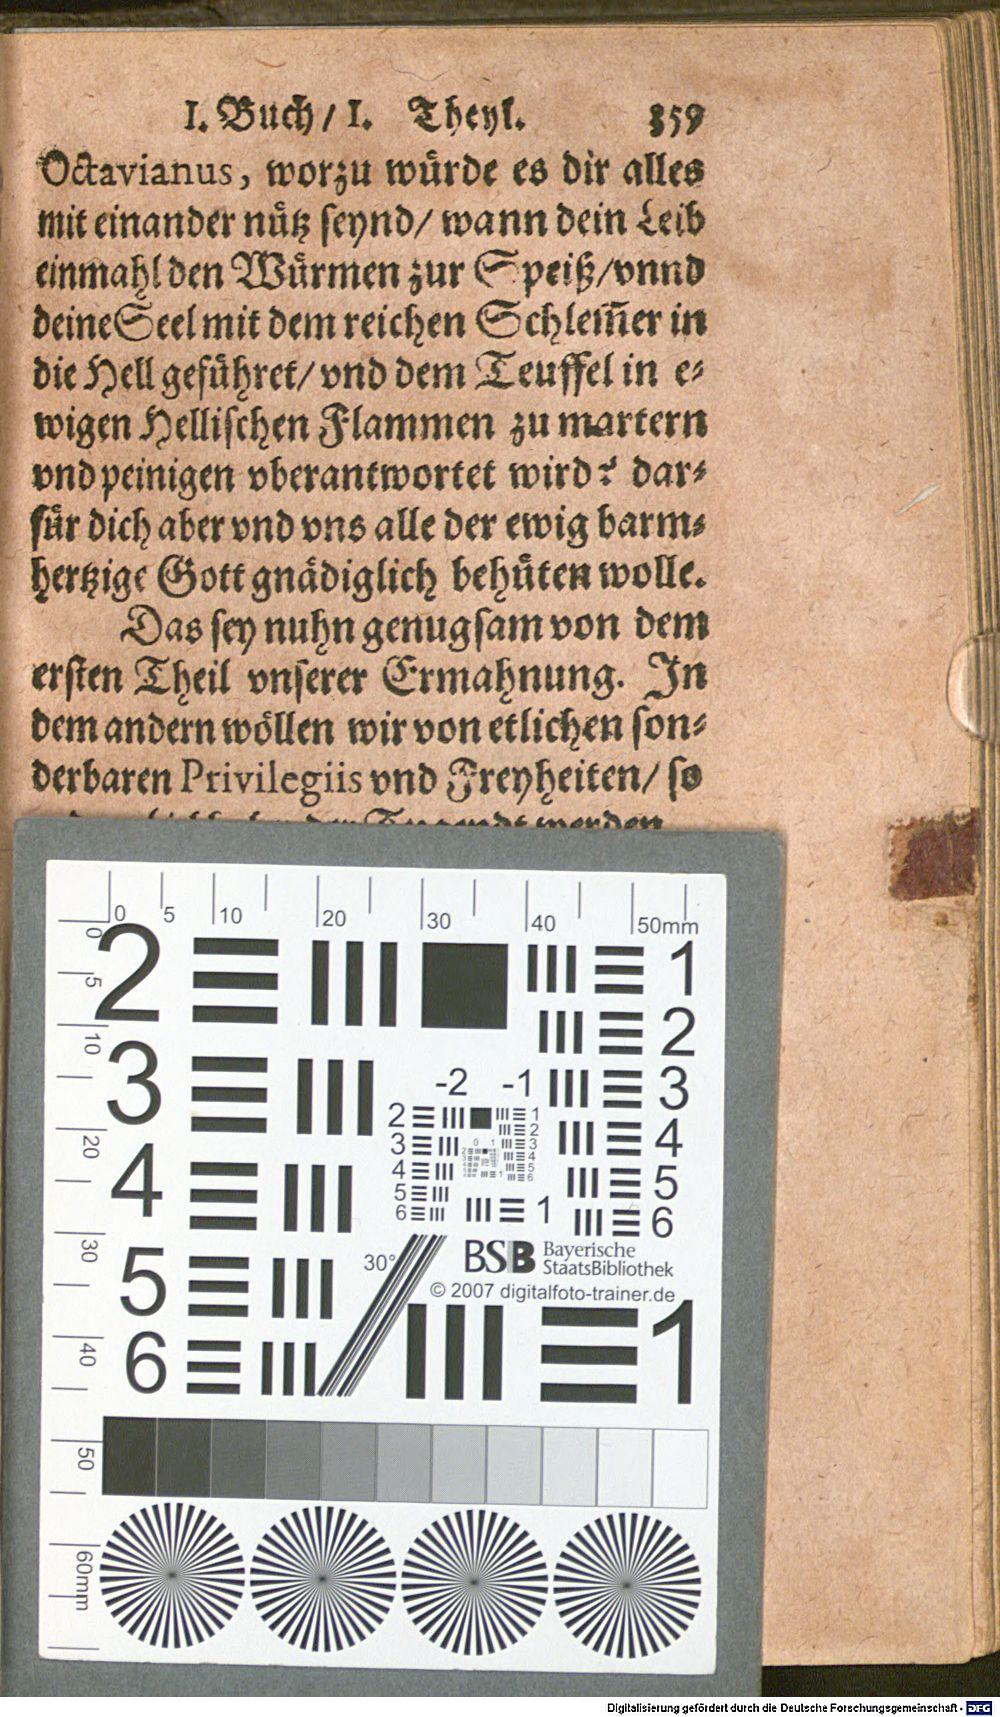 I. Buch/ I. Theyl. 359
Octavianus, worzu wuͤrde es dir alles
mit einander nuͤtz seynd/ wann dein Leib
einmahl den Wuͤrmen zur Speiß/vnnd
deine Seel mit dem reichen Schlem̃er in
die Hell gefuͤhret/ vnd dem Teuffel in e-
wigen Hellischen Flammen zu martern
vnd peinigen vberantwortet wird? dar-
fuͤr dich aber vnd vns alle der ewig barm-
hertzige Gott gnaͤdiglich behuͤten wolle.
Das sey nuhn genugsam von dem
ersten Theil vnserer Ermahnung. In
dem andern woͤllen wir von etlichen son-
derbaren Privilegiis vnd Freyheiten/ so
der Tugendt werden
0 5 10 20 30 40 50mm
0 5 10 20 30 40 50 60mm
2 1
2
3 -2 -1 3
2 1
2
3 3
4 4
4 4
5 5
6 6
5
1 6
30°
BSB Bayerische
StaatsBibliothek
© 2007 digitalfoto-trainer.de
5
6 1
Digitalisierung gefördert durch die Deutsche Forschungsgemeinschaft - DFG